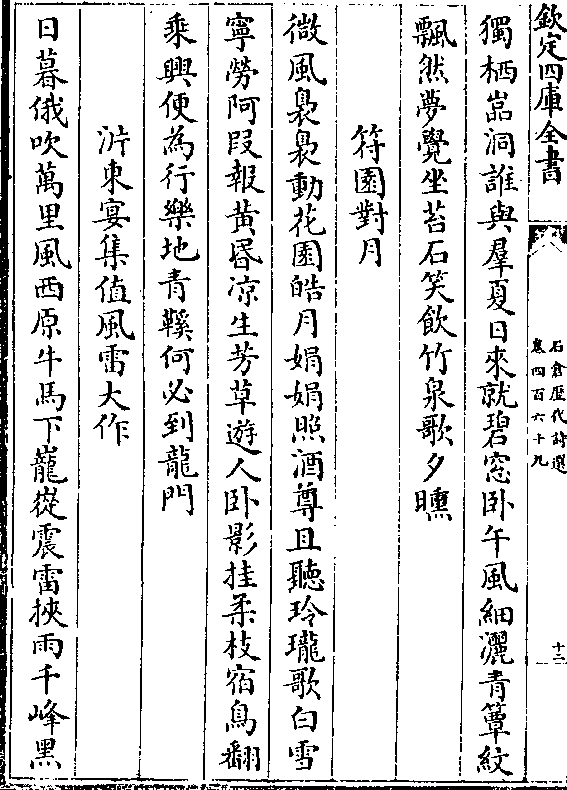 欽定四庫全書
石倉歷代詩選
卷四百六十九
十二
獨栖嵓洞誰與羣夏日來就碧窓卧午風細灑青簟紋
飄然夢覺坐苔石笑飲竹泉歌夕曛
符園對月
微風裊裊動花園皓月娟娟照酒尊且聽玲瓏歌白雪
寧勞阿叚報黄昏凉生芳草遊人卧影挂柔枝宿鳥翻
乘興便為行樂地青鞵何必到龍門
泝東宴集值風雷大作
日暮俄吹萬里風西原牛馬下巃嵸震雷挾雨千峰黑